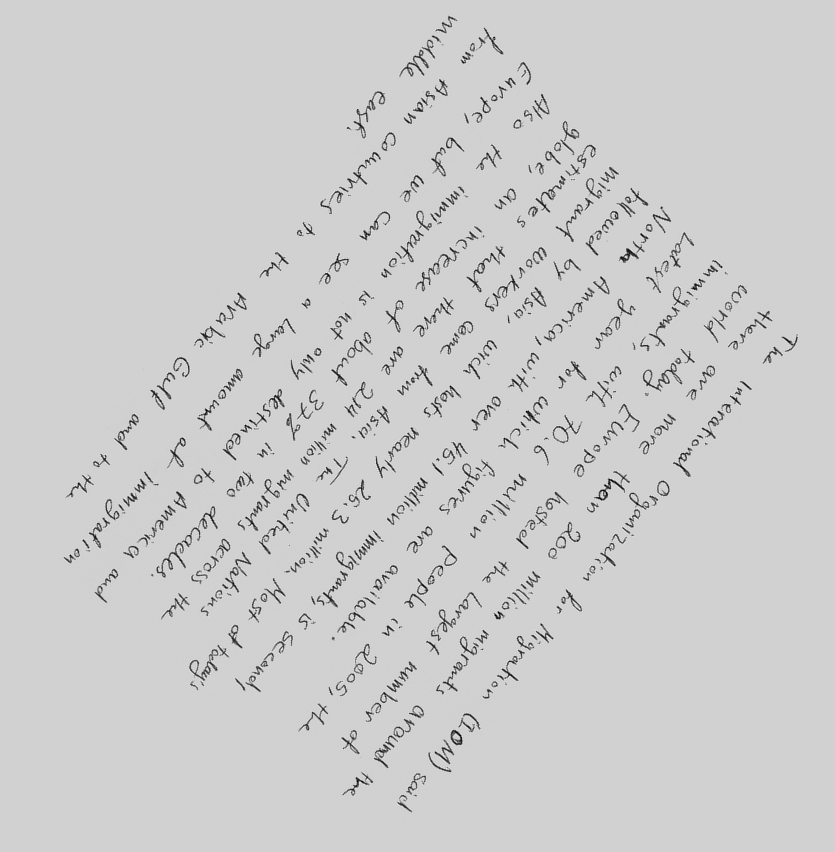 The Interational Organization for Migration (IOM) said
there are more then 200 million migrants around the
world today. Europe hosted the largest number of
immigrants, with 70.6 million people in 2005, the
Latest year for which figures are available.
North America, with over 45.1 million immigrants, is second,
followed by Asia, wich hosts nearly 25.3 million. Most of today's
migrant workers come from Asia. The United Nations
estimates that there are 214 million migrants across the
globe, an increase of about 37% in two decades.
Also the immigration is not only destined to America and
Europe, but we can see a large amount of immigration
from Asian countries to the Arabic Gulf and to the
middle east.